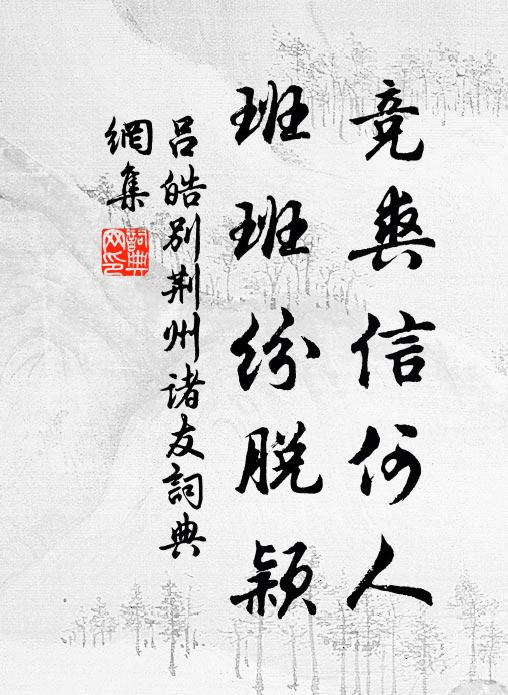 竞爽信何人
班班纷脱颖
吕皓别荆州诸友詞典
網集
詞典
网印